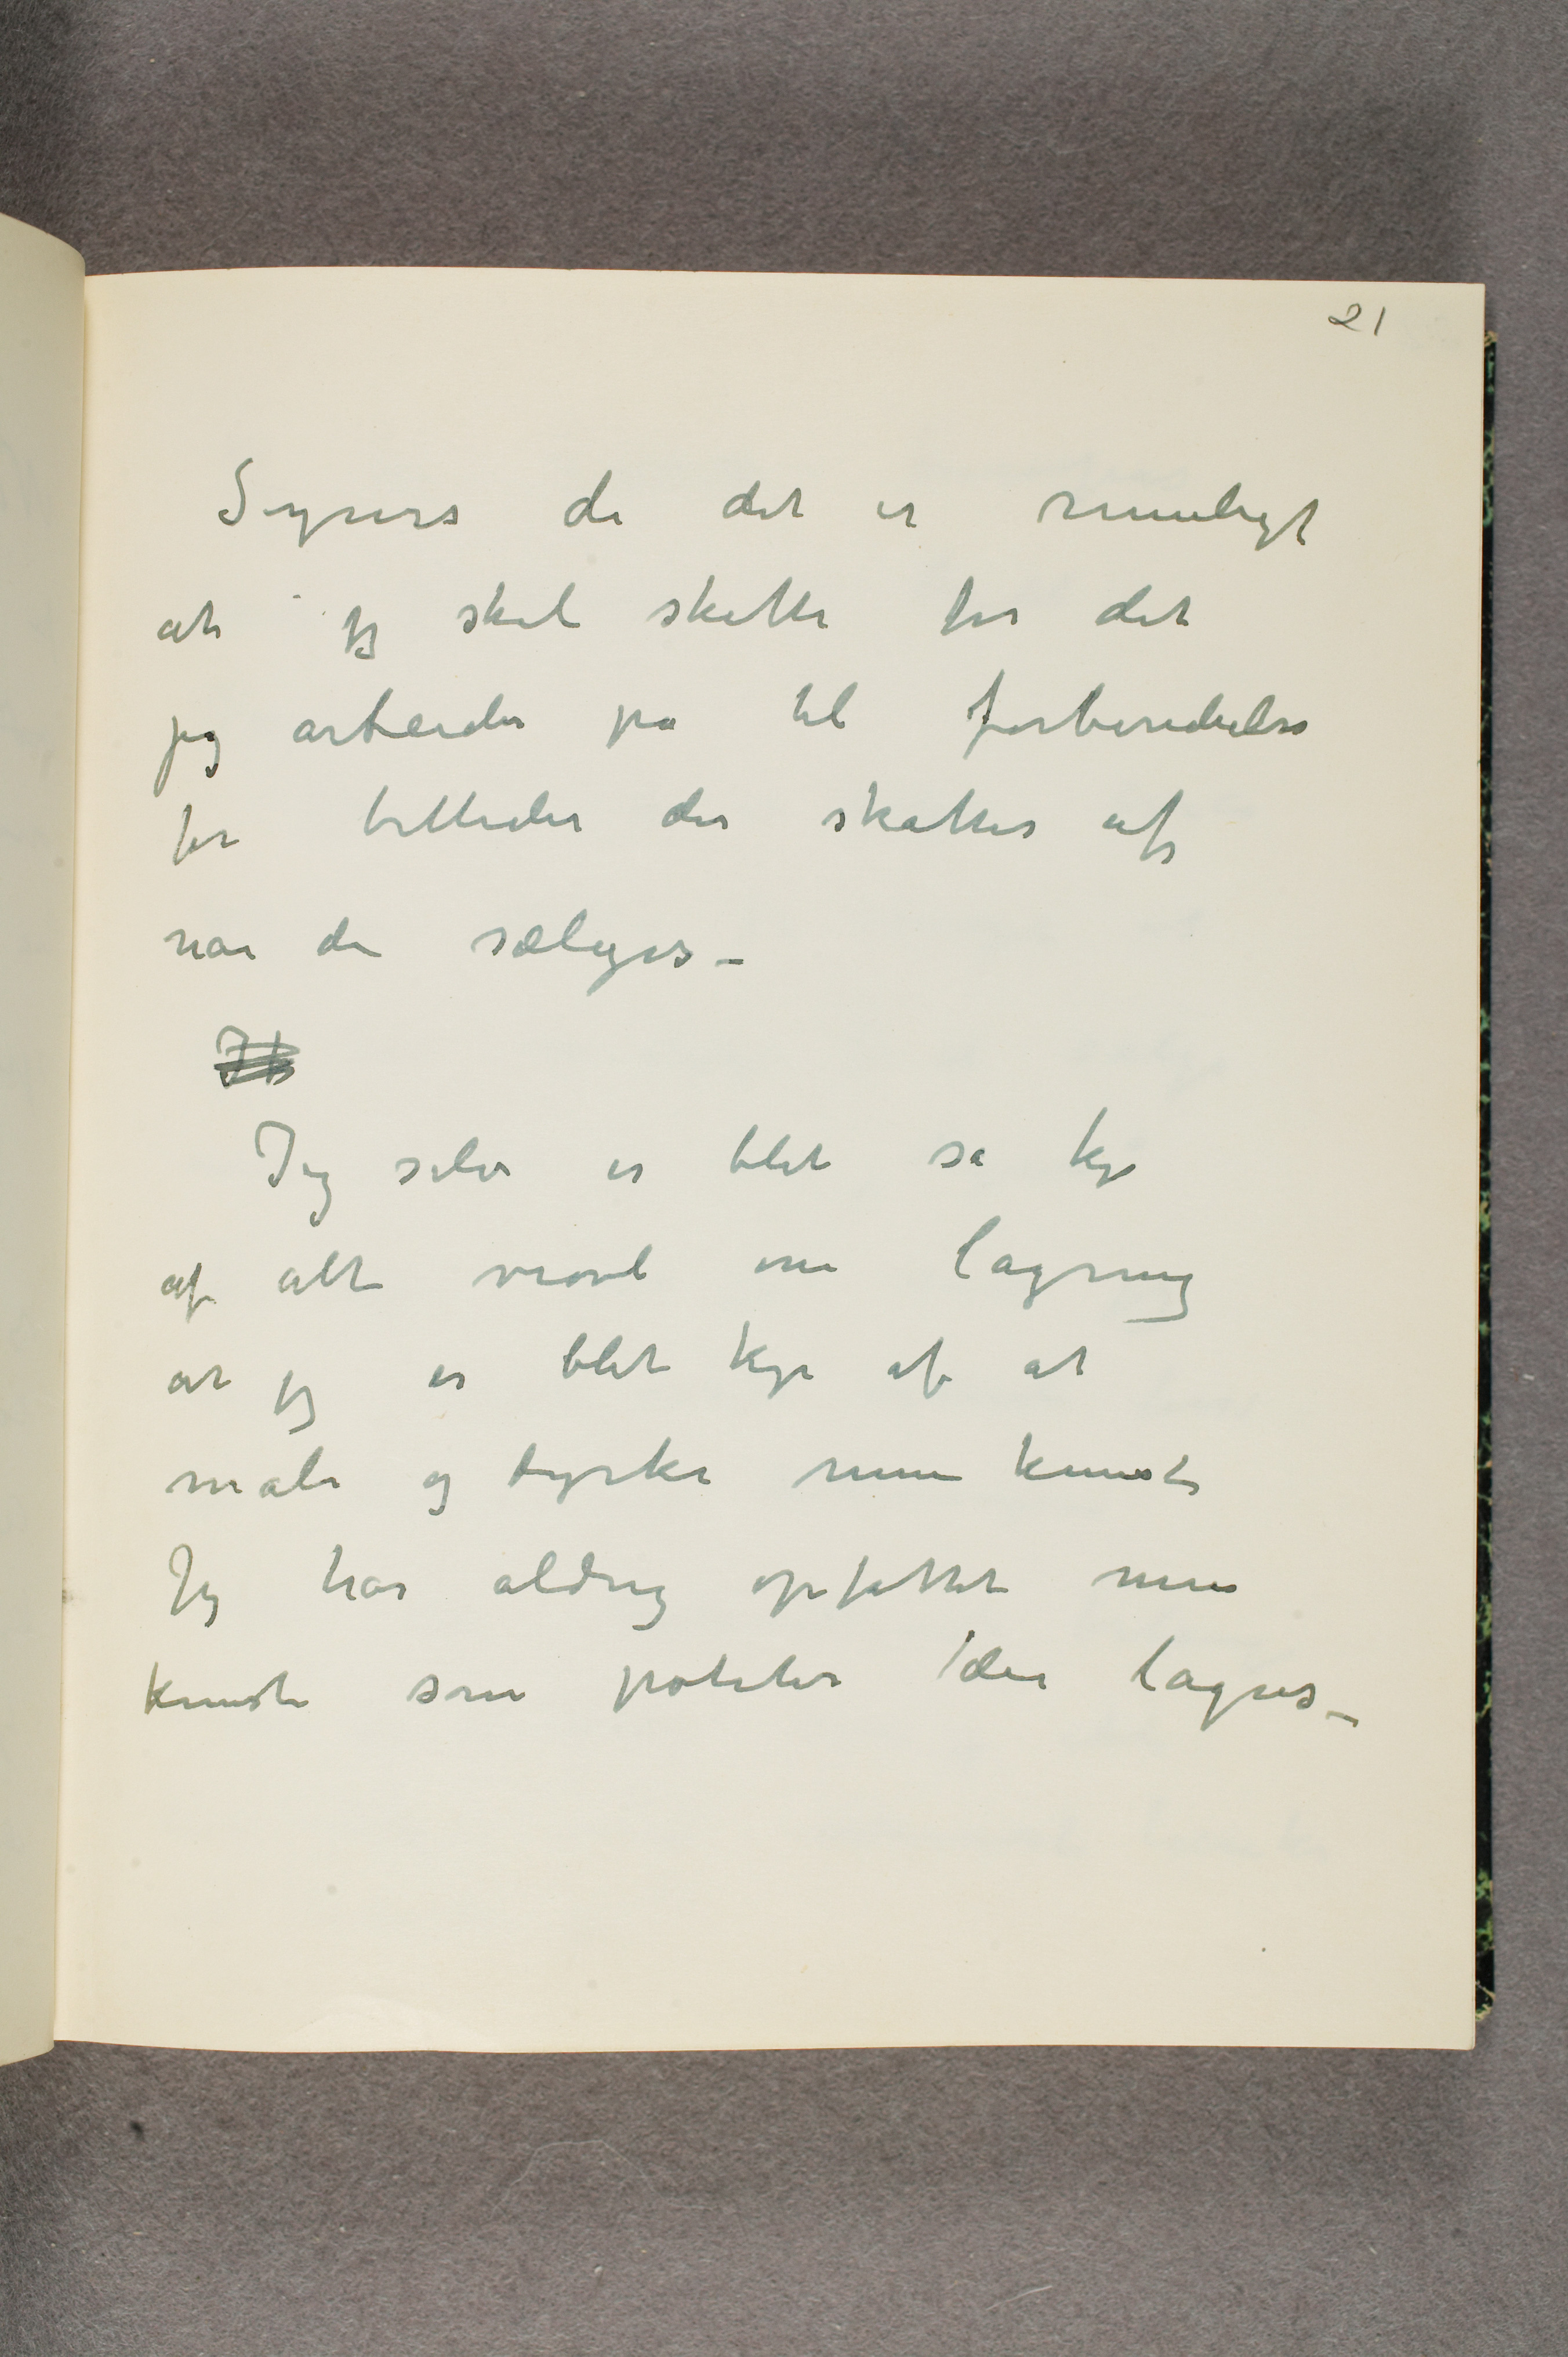 21
Synes de det er rimeligt
at jeg skal skatte for det
jeg arbeider på til forberedelse
for billeder der skattes af
når de sælges –
Jeg selv er blet så kje
af alt vrøvl om lagring
at jeg er blet kje af at
male og dyrke min kunst
Jeg har aldrig opfattet min
kunst som poteter der lagres –